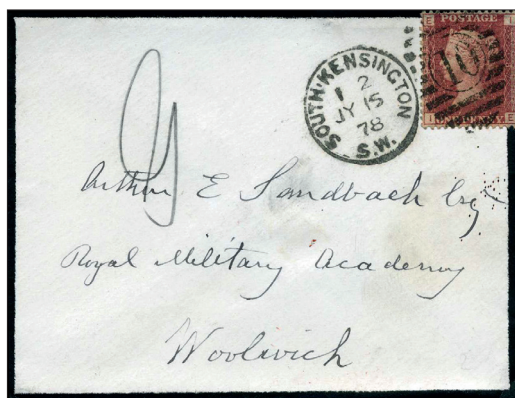 E POSTAGE I
10
I ONE PENNY E
SOUTH·KENSINGTON
1 2
JY 15
78
S.W.
Arthur E Sandbach Esq
Royal Military Academy
Woolwich